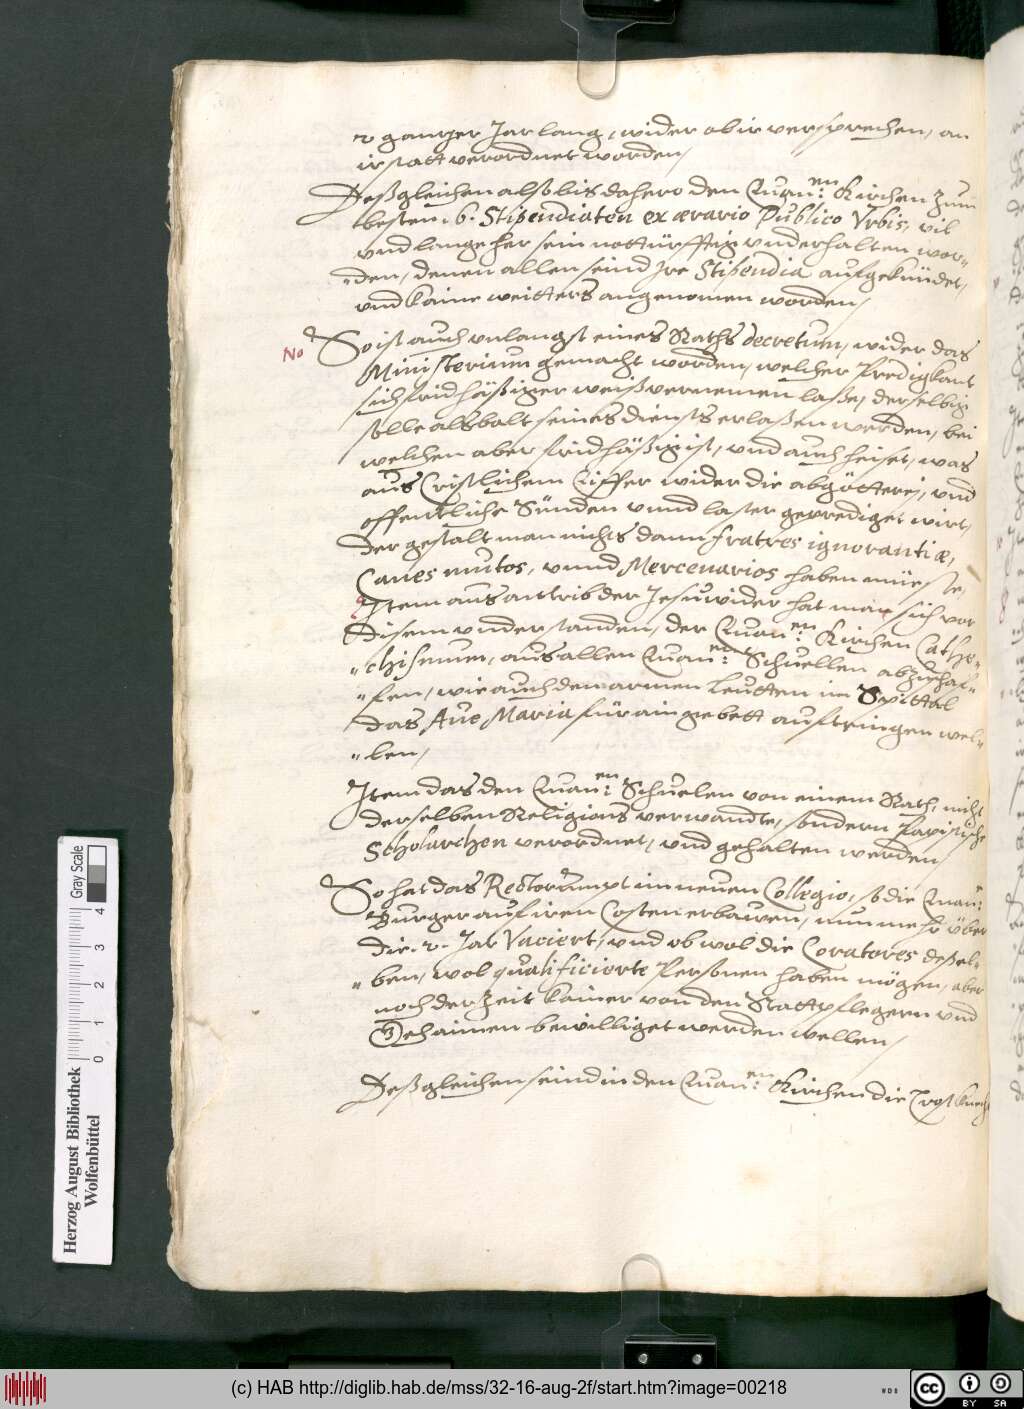 2 gantzer Jar lang, wider ob ir versprechen, an
ir statt verordnet worden,
Deßgleichen alß bis dahero den Euan:en Kirchen zum
besten, 6. Stipendiaten ex ærario Publico Vrbis, vil
vnd lange her sein notturfftig vnderhalten wor„
„den, denen allen seind jre Stipendia aufgekündet,
vnd kaine weitters angenomen worden,
No So ist auch vnlangst eines Raths decretum, wider das
Ministerium gemacht worden, welcher Predigkant
sich fridhäßiger weiß vernemen laße, derselbig
solle alsbalt seines diensts erlaßen werden, bei
welchen aber fridhäßig ist, vnd auch heiset, was
aus Cristlichem Eiffer wider die abgötterei, vnd
offentliche Sünden vnnd laster geprediget wirt,
Der gestalt man nichts dann fratres ignorantiæ,
Canes mutos, vnnd Mercenarios haben müeste,
Item aus antrib der Jesuwider hat man sich vor
disem vnderstanden, der Euan:en Kirchen Cathe„
„chismum, aus allen Euan:en Schuellen abzuschaf„
„fen, wie auch dem armen Leutten im Spittal
das Aue Maria für ain gebett auftringen wel„
„len,
Item das den Euan:en Schuelen von einem Rath, nicht
derselben Religions verwandte, sondern Papistische
Scholarchen verordnet, vnd gehalten werden,
So hat das Rectorampt im neuen Collegio, so die Euan:
Burger auf iren Costen erbawen, nun mehr über
die 2. Jar Vaciert, vnd ob wol die Coratores deßel„
„ben, wol qualificierte Personen haben mögen, aber
noch der Zeit kainer von den Stattpflegern vnd
Gehaimen bewilliget werden wellen,
Deßgleichen seind in den Euan:en Kirchen die
Herzog August Bibliothek
Wolfenbüttel
Gray Scale
0 1 2 3 4
(c) HAB http://diglib.hab.de/mss/32-16-aug-2f/start.htm?image=00218
WDB
cc BY SA